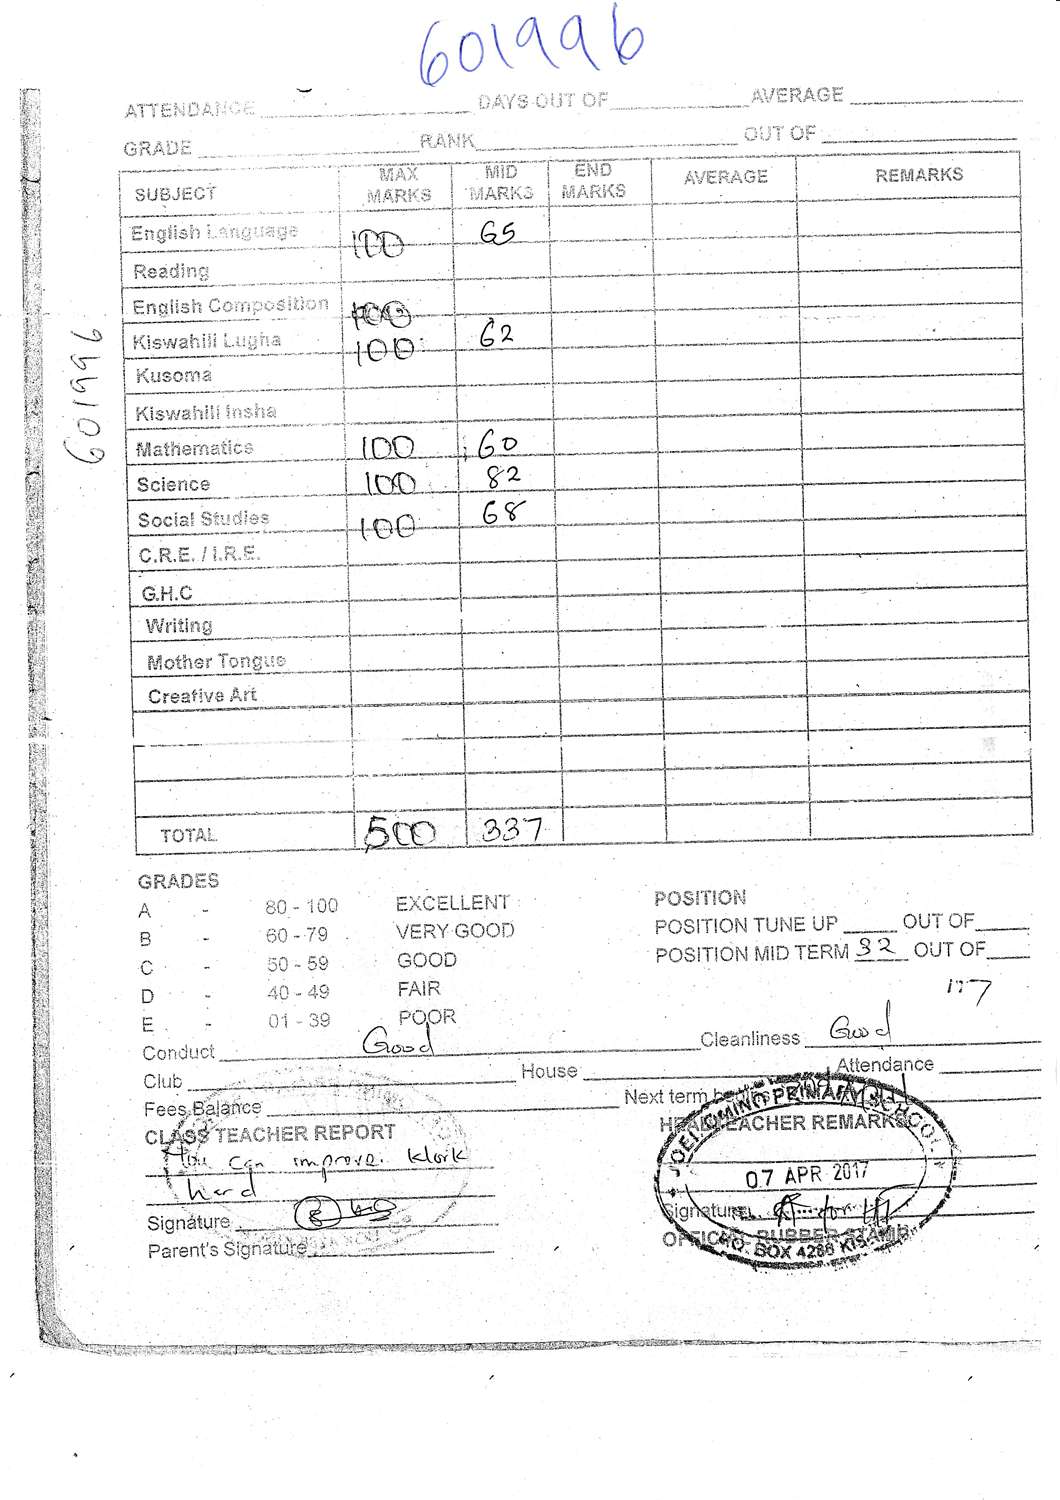 601996
ATTENDANCE DAYS OUT OF AVERAGE
GRADE RANK OUT OF
SUBJECT MAX MARKS MID MARKS END MARKS AVERAGE REMARKS
English Language 100 65
Reading
English Composition 100
Kiswahili Lugha 100 62
Kusoma
Kiswahili Insha
601996
Mathematics 100 60
Science 100 82
Social Studies 100 68
C.R.E. / I.R.E.
G.H.C
Writing
Mother Tongue
Creative Art
TOTAL 500 337
GRADES
A - 80 - 100 EXCELLENT
B - 60 - 79 VERY GOOD
C - 50 - 59 GOOD
D - 40 - 49 FAIR
E - 01 - 39 POOR
POSITION
POSITION TUNE UP OUT OF
POSITION MID TERM 32 OUT OF
117
Conduct Good Cleanliness Good
Club House Attendance
Fees Balance Next term begins
CLASS TEACHER REPORT
You can improve. Work
hard
Signature
Parent's Signature
HEADTEACHER REMARKS
Signature
OFFICIAL RUBBER STAMP
JOEL OMINO PRIMARY SCHOOL
07 APR 2017
P.O. BOX 4288 KISUMU